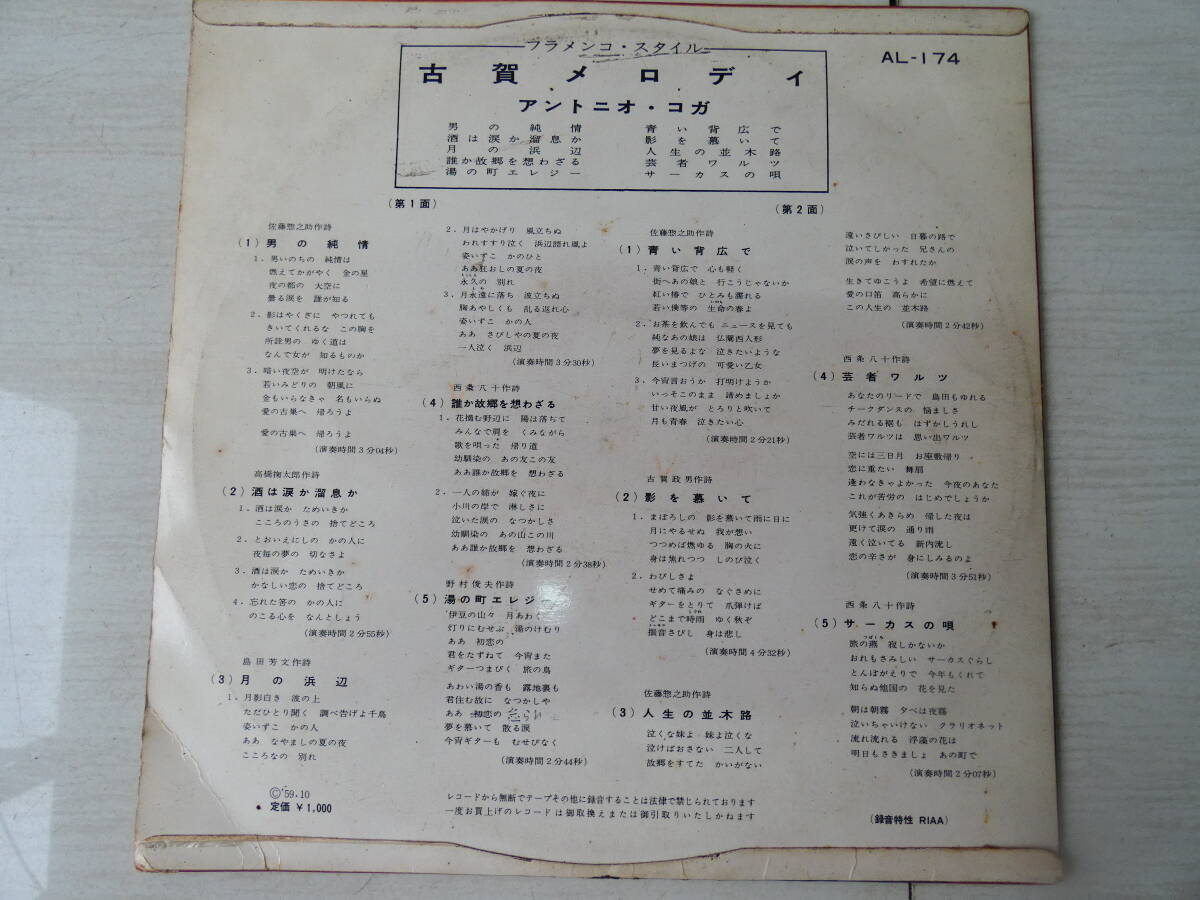 フラメンコ・スタイル
AL-174
古賀メロディ
アントニオ・コガ
男の純情
酒は涙か溜息か
月の浜辺
誰か故郷を想わざる
湯の町エレジー
青い背広で
影を慕いて
人生の並木路
芸者ワルツ
サーカスの唄
(第1面)
佐藤惣之助作詩
(1) 男の純情
1. 男いのちの 純情は
燃えてかがやく 金の星
夜の都の 大空に
曇る涙を 誰が知る
2. 影はやくざに やつれても
きいてくれるな この胸を
所詮男の ゆく道は
なんで女が 知るものか
3. 暗い夜空が 明けたなら
若いみどりの 朝風に
金もいらなきゃ 名もいらぬ
愛の古巣へ 帰ろうよ
愛の古巣へ 帰ろうよ
(演奏時間3分04秒)
高橋掬太郎作詩
(2) 酒は涙か溜息か
1. 酒は涙か ためいきか
こころのうさの 捨てどころ
2. とおいえにしの かの人に
夜毎の夢の 切なさよ
3. 酒は涙か ためいきか
かなしい恋の 捨てどころ
4. 忘れた筈の かの人に
のこる心を なんとしょう
(演奏時間2分55秒)
島田芳文作詩
(3) 月の浜辺
1. 月影白き 波の上
ただひとり聞く 調べ告げよ千鳥
姿いずこ かの人
ああ なやましの夏の夜
こころなの 別れ
2. 月はやかげり 風立ちぬ
われすすり泣く 浜辺語れ風よ
姿いずこ かのひと
ああ狂おしの夏の夜
永久の 別れ
3. 月永遠に落ち 波立ちぬ
胸あやしくも 乱る返れ心
姿いずこ かの人
ああ さびしやの夏の夜
一人泣く 浜辺
(演奏時間3分30秒)
西条八十作詩
(4) 誰か故郷を想わざる
1. 花摘む野辺に 陽は落ちて
みんなで肩を くみながら
歌を唄った 帰り道
幼馴染の あの友この友
ああ誰か故郷を 想わざる
2. 一人の姉が 嫁ぐ夜に
小川の岸で 淋しさに
泣いた涙の なつかしさ
幼馴染の あの山この川
ああ誰か故郷を 想わざる
(演奏時間2分38秒)
野村俊夫作詩
(5) 湯の町エレジー
伊豆の山々 月あわく
灯りにむせぶ 湯のけむり
ああ 初恋の
君をたずねて 今宵また
ギターつまびく 旅の鳥
あわい湯の香も 露地裏も
君住む故に なつかしや
ああ 初恋の 忘られ
夢を慕いて 散る涙
今宵ギターも むせびなく
(演奏時間2分44秒)
(第2面)
佐藤惣之助作詩
(1) 青い背広で
1. 青い背広で 心も軽く
街へあの娘と 行こうじゃないか
紅い椿で ひとみも濡れる
若い僕等の 生命の春よ
2. お茶を飲んでも ニュースを見ても
純なあの娘は 仏蘭西人形
夢を見るよな 泣きたいような
長いまつげの 可愛い乙女
3. 今宵言おうか 打明けようか
いっそこのまま 諦めましょか
甘い夜風が とろりと吹いて
月も青春 泣きたい心
(演奏時間2分21秒)
古賀政男作詩
(2) 影を慕いて
1. まぼろしの 影を慕いて雨に日に
月にやるせぬ 我が想い
つつめば燃ゆる 胸の火に
身は焦れつつ しのび泣く
2. わびしさよ
せめて痛みの なぐさめに
ギターをとりて 爪弾けば
どこまで時雨 ゆく秋ぞ
振音さびし 身は悲し
(演奏時間4分32秒)
佐藤惣之助作詩
(3) 人生の並木路
泣くな妹よ 妹よ泣くな
泣けばおさない 二人して
故郷をすてた かいがない
遠いさびしい 日暮の路で
泣いてしかった 兄さんの
涙の声を わすれたか
生きてゆこうよ 希望に燃えて
愛の口笛 高らかに
この人生の 並木路
(演奏時間2分42秒)
西条八十作詩
(4) 芸者ワルツ
あなたのリードで 島田もゆれる
チークダンスの 悩ましさ
みだれる裾も はずかしうれし
芸者ワルツは 思い出ワルツ
空には三日月 お座敷帰り
恋に重たい 舞扇
逢わなきゃよかった 今夜のあなた
これが苦労の はじめでしょうか
気強くあきらめ 帰した夜は
更けて涙の 通り雨
遠く泣いてる 新内流し
恋の辛さが 身にしみるのよ
(演奏時間3分51秒)
西条八十作詩
(5) サーカスの唄
旅の燕 寂しかないか
おれもさみしい サーカスぐらし
とんぼがえりで 今年もくれて
知らぬ他国の 花を見た
朝は朝霧 夕べは夜霧
泣いちゃいけない クラリオネット
流れ流れる 浮藻の花は
明日もさきましょ あの町で
(演奏時間2分07秒)
Ⓒ'59.10
• 定価 ¥1,000
レコードから無断でテープその他に録音することは法律で禁じられております
一度お買上げのレコードは御取換えまたは御引取りいたしかねます
(録音特性 RIAA)